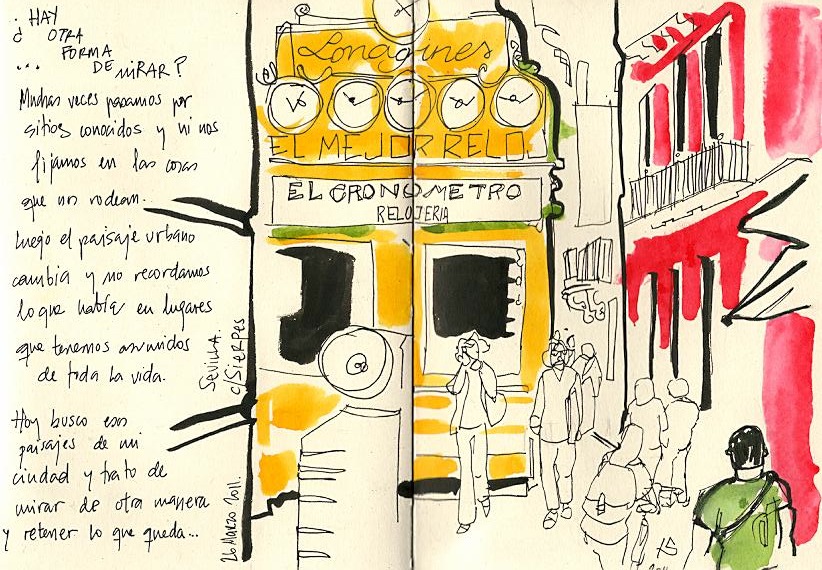 . HAY
¿ OTRA
FORMA
... DE MIRAR?
Muchas veces pasamos por
sitios conocidos y ni nos
fijamos en las cosas
que nos rodean.
Luego el paisaje urbano
cambia y no recordamos
lo que había en lugares
que tenemos asumidos
de toda la vida.
Hoy busco esos
paisajes de mi
ciudad y trato de
mirar de otra manera
y retener lo que queda...
SEVILLA.
C/SIERPES
26 MARZO 2011.
Longines
EL MEJOR RELO
EL CRONOMETRO
RELOJERIA
2011